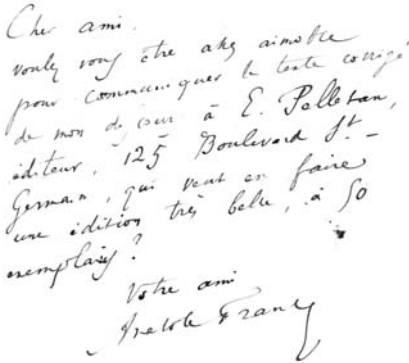 Cher ami.
voulez vous être assez aimable
pour communiquer le texte corrigé
de mon discours à E. Pelletan,
éditeur, 125 Boulevard St-
Germain, qui veut en faire
une édition très belle, à 50
exemplaires ?
Votre ami
Anatole France